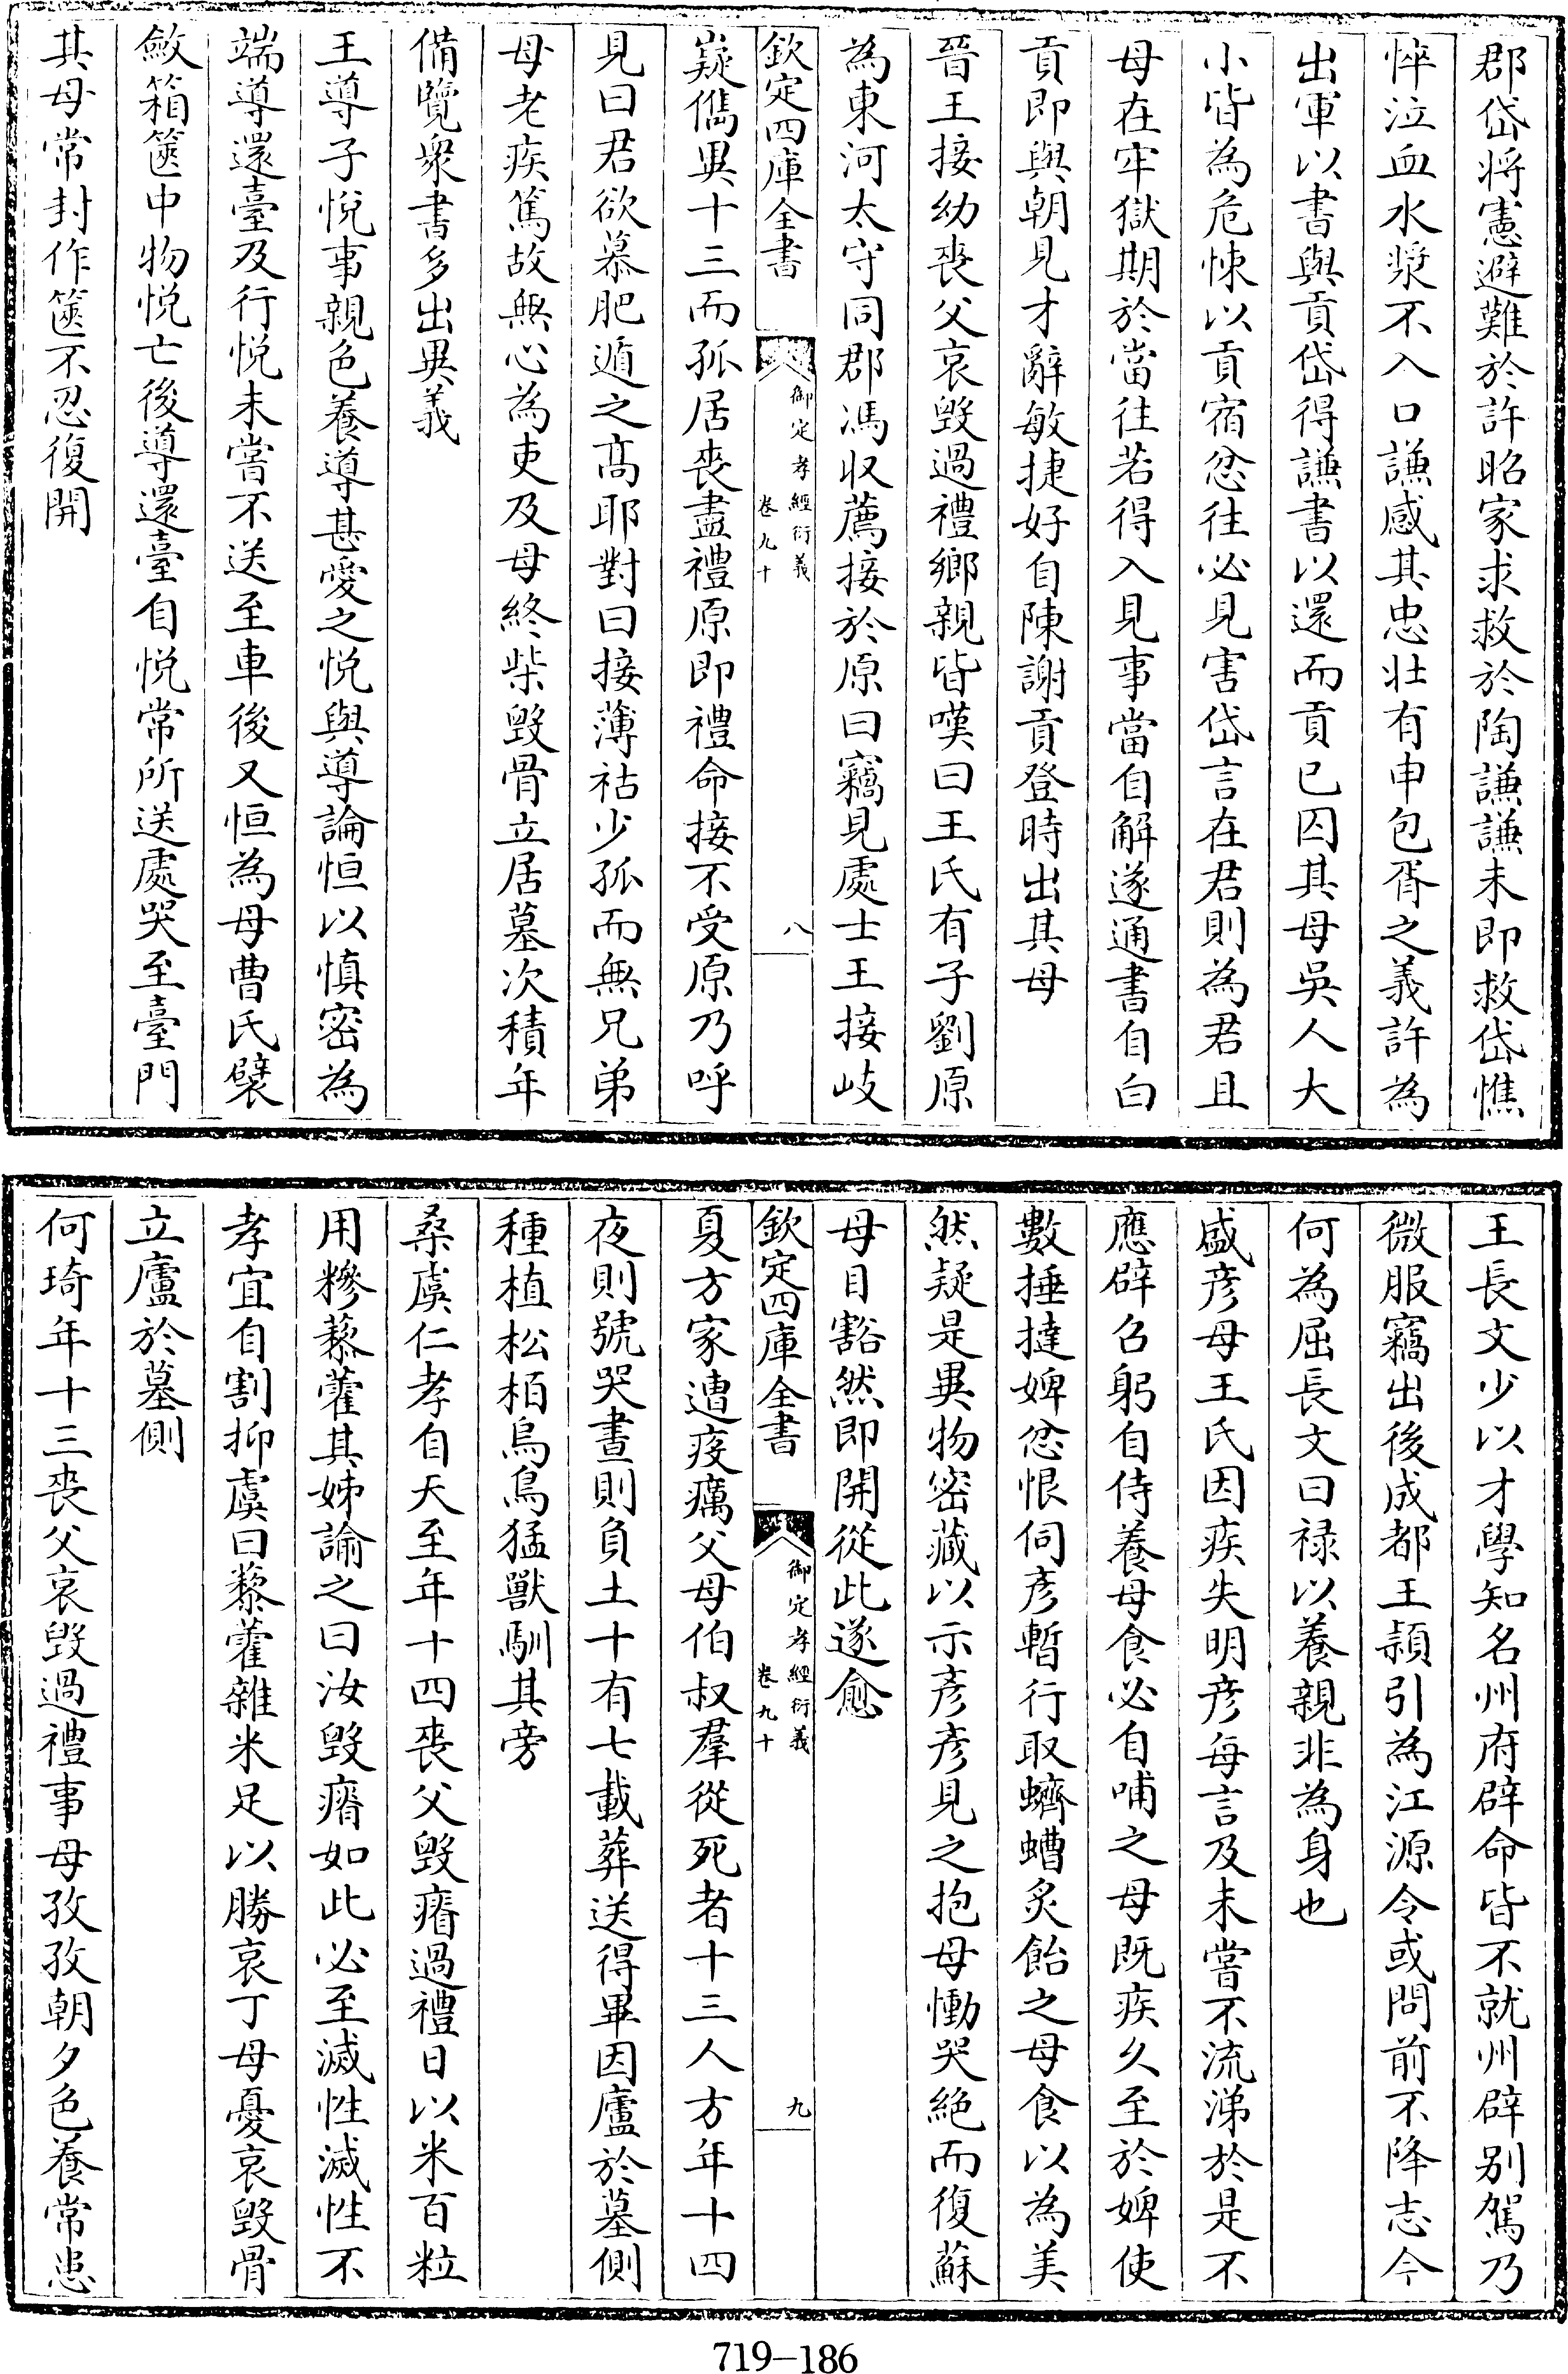 郡岱将憲避難於許昭家求救於陶謙謙未即救岱憔
悴泣血水漿不入口謙感其忠壮有申包胥之義許為
出軍以書與貢岱得謙書以還而貢已囚其母吳人大
小皆為危悚以貢宿忿往必見害岱言在君則為君且
母在牢獄期於當往若得入見事當自解遂通書自白
貢即與朝見才辭敏捷好自陳謝貢登時出其母
晉王接幼喪父哀毁過禮鄉親皆嘆曰王氏有子劉原
為東河太守同郡馮収薦接於原曰竊見處士王接岐
欽定四庫全書
御定孝經衍義
卷九十
八
嶷儁異十三而孤居喪盡禮原即禮命接不受原乃呼
見曰君欲慕肥遁之髙耶對曰接薄祜少孤而無兄弟
母老疾篤故無心為吏及母終柴毁骨立居墓次積年
備覽衆書多出異義
王導子悦事親色養導甚愛之悦與導論恒以慎密為
端導還臺及行悦未嘗不送至車後又恒為母曹氏襞
斂箱篋中物悦亡後導還臺自悦常所送處哭至臺門
其母常封作篋不忍復開
王長文少以才學知名州府辟命皆不就州辟别駕乃
微服竊出後成都王頴引為江源令或問前不降志今
何為屈長文曰禄以養親非為身也
盛彦母王氏因疾失明彦每言及未嘗不流涕於是不
應辟召躬自侍養母食必自哺之母既疾久至於婢使
數捶撻婢忿恨伺彦暫行取蠐螬炙飴之母食以為美
然疑是異物密藏以示彦彦見之抱母慟哭絶而復蘇
母目豁然即開從此遂愈
欽定四庫全書
御定孝經衍義
卷九十
九
夏方家遭疫癘父母伯叔羣從死者十三人方年十四
夜則號哭晝則負土十有七載葬送得畢因廬於墓側
種植松栢烏鳥猛獸馴其旁
桑虞仁孝自天至年十四喪父毁瘠過禮日以米百粒
用糝藜藿其姊諭之曰汝毁瘠如此必至滅性滅性不
孝宜自割抑虞曰藜藿雜米足以勝哀丁母憂哀毁骨
立廬於墓側
何琦年十三喪父哀毁過禮事母孜孜朝夕色養常患
719-186